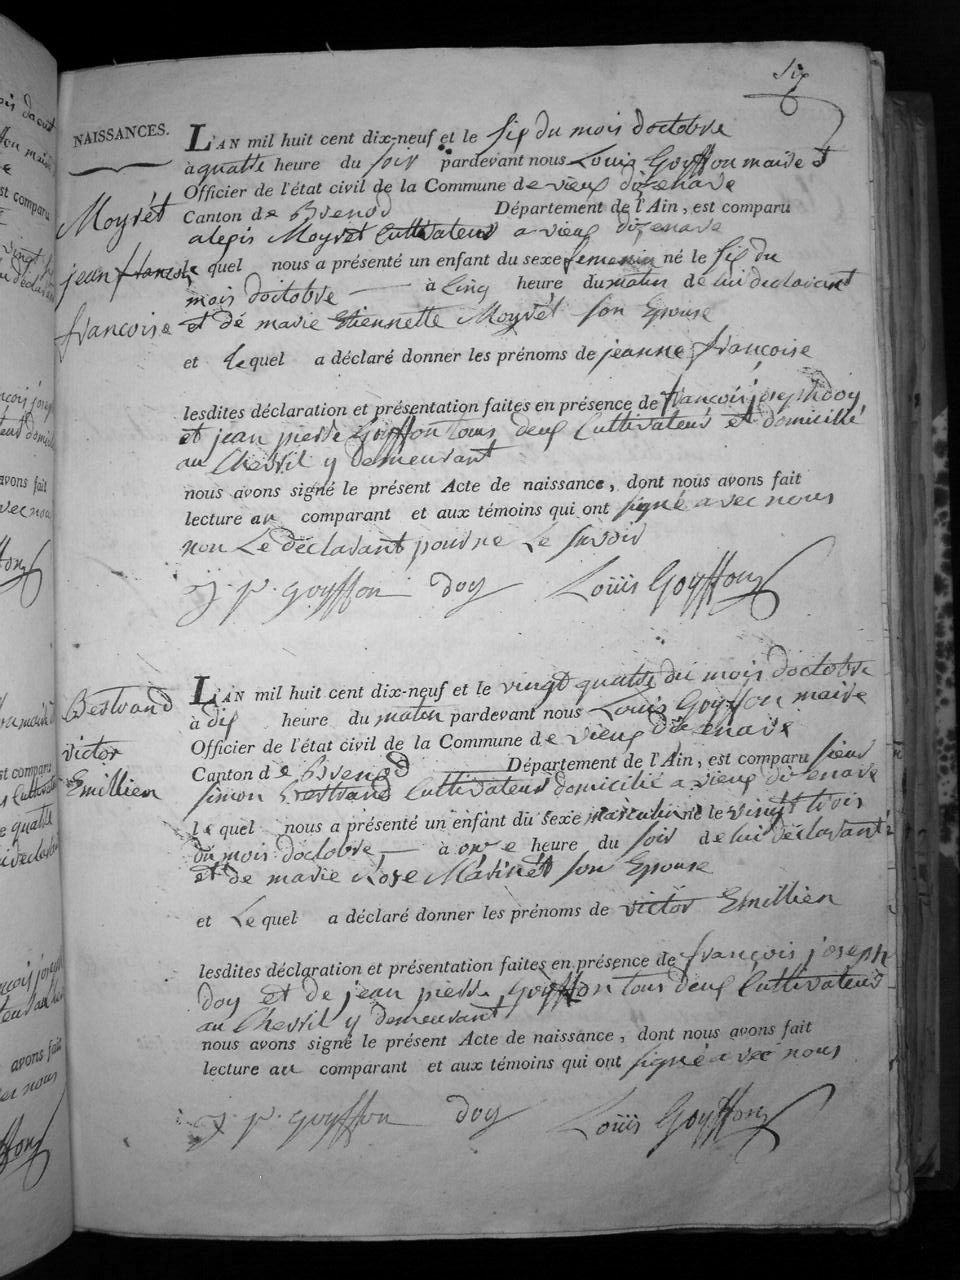 Six
NAISSANCES.
L'AN mil huit cent dix-neuf et le six du mois doctobre
à quatre heure du soir pardevant nous Louis Goyffon maire &
Officier de l'état civil de la Commune de vieux dizenave
Canton de Brenod Département de l'Ain, est comparu
alexis Moyret Cultivateur a vieux dizenave
Moyrét
jean francoise
francoise
le quel nous a présenté un enfant du sexe femenin né le six du
mois doctobre — à Cinq heure du matin de lui declarant
et dé marie Etiennette Moyrét son Epouse
et Lequel a déclaré donner les prénoms de jeanne françoise
lesdites déclaration et présentation faites en présence de francois joseph doy
et jean pierre Goyffon tous deux Cultivateurs et domicilié
au Chevril y demeurant
nous avons signé le présent Acte de naissance, dont nous avons fait
lecture au comparant et aux témoins qui ont signé avec nous
non Le déclarant pour ne Le savoir
J. P. goyffon doy Louis Goyffon
Bertrand
victor
Emillien
L'AN mil huit cent dix-neuf et le vingt quatre du mois doctobre
à dix heure du matin pardevant nous Louis Goyffon maire
Officier de l'état civil de la Commune de vieux dizenave
Canton de Brenod Département de l'Ain, est comparu sieur
simon Bertrand Cultivateur domicilié a vieux dizenave
le quel nous a présenté un enfant du sexe masculin né le vingt trois
du mois doctobre — à onze heure du soir de lui déclarant
et de marie Rose Marinét son Epouse
et Le quel a déclaré donner les prénoms de victor Emillien
lesdites déclaration et présentation faites en présence de françois joseph
doy et de jean pierre goyffon tous deux Cultivateurs
au Chevril y demeurant
nous avons signé le présent Acte de naissance, dont nous avons fait
lecture au comparant et aux témoins qui ont signé avec nous
J. P. goyffon doy Louis Goyffon